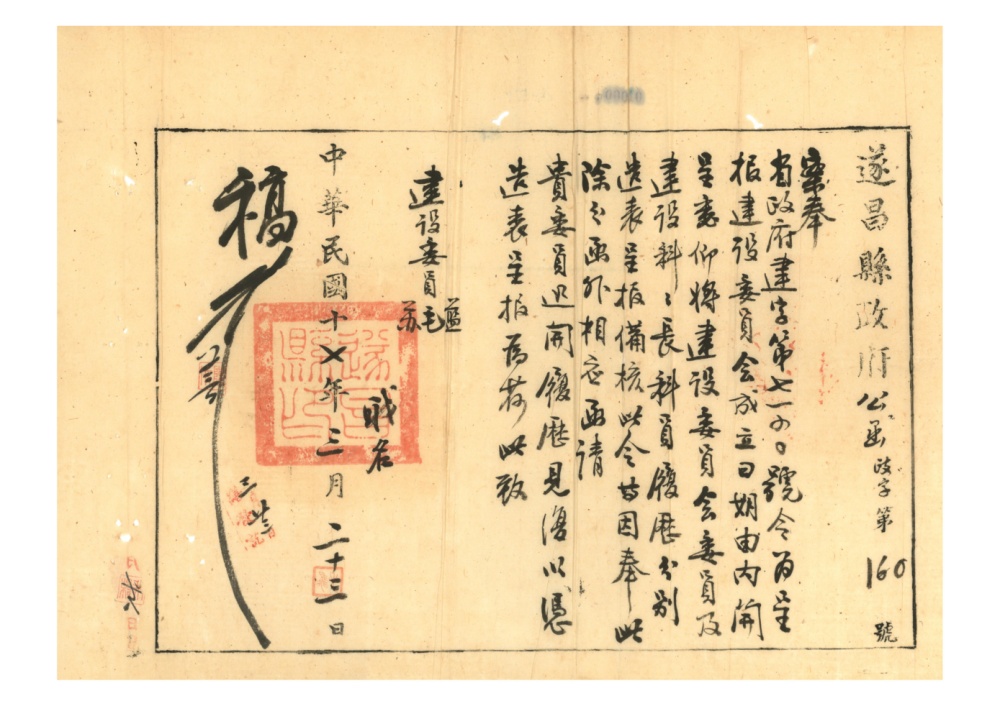 遂昌縣政府公函政字第160號
案奉
省政府建字第七一四〇號令為呈
报建设委員会成立日期由内開
呈悉仰將建设委員会委員及
建设科々長科員履歷分别
造表呈报備核此令等因奉此
除分函外相应函請
貴委員迅開履歷見復以憑
造表呈报為荷此致
建设委員
藍
毛
苏
戳名
中華民國十七年三月二十三日
稿